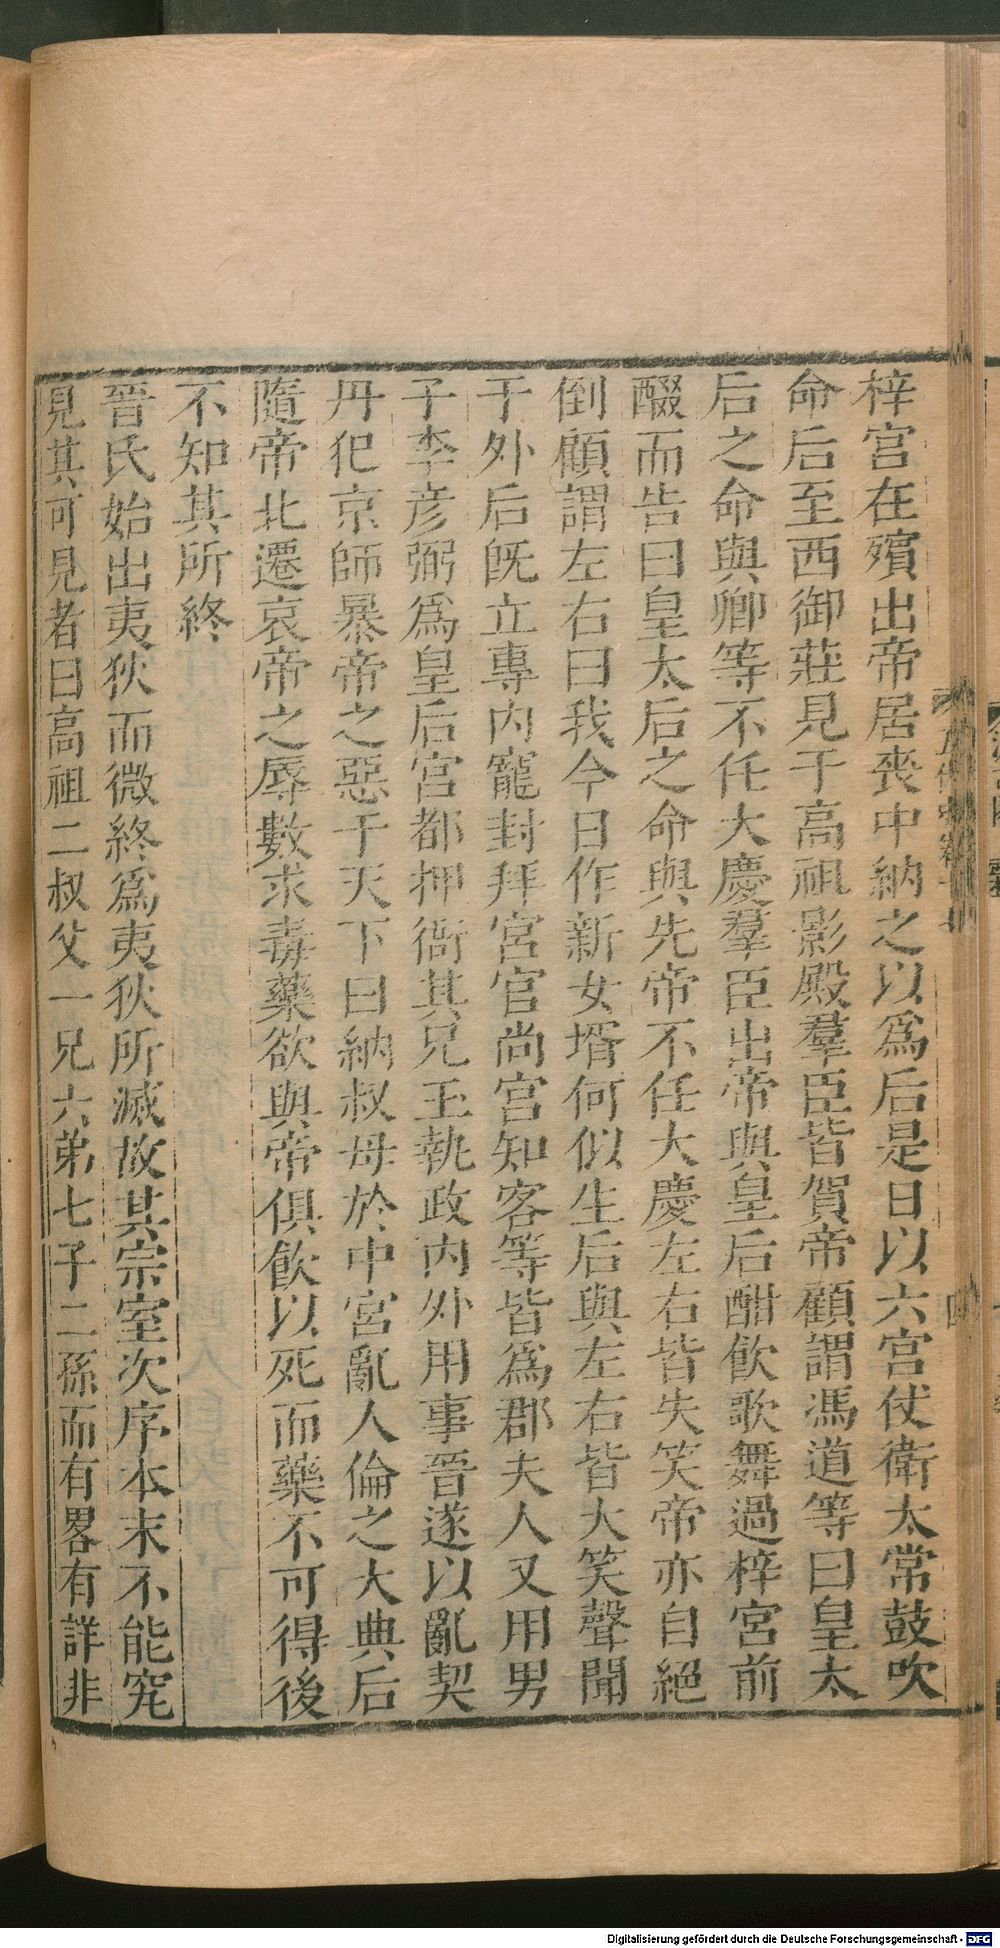 梓宮在殯出帝居喪中納之以爲后是日以六宮仗衛太常鼓吹
命后至西御莊見于高祖影殿羣臣皆賀帝顧謂馮道等曰皇太
后之命與卿等不任大慶羣臣出帝與皇后酣飲歌舞過梓宮前
醊而告曰皇太后之命與先帝不任大慶左右皆失笑帝亦自絕
倒顧謂左右曰我今日作新女壻何似生后與左右皆大笑聲聞
于外后旣立專內寵封拜宮官尚宮知客等皆爲郡夫人又用男
子李彥弼爲皇后宮都押衙其兄玉執政內外用事晉遂以亂契
丹犯京師暴帝之惡于天下曰納叔母於中宮亂人倫之大典后
隨帝北遷哀帝之辱數求毒藥欲與帝俱飲以死而藥不可得後
不知其所終
晉氏始出夷狄而微終爲夷狄所滅故其宗室次序本末不能究
見其可見者曰高祖二叔父一兄六弟七子二孫而有畧有詳非
Digitalisierung gefördert durch die Deutsche Forschungsgemeinschaft - DFG